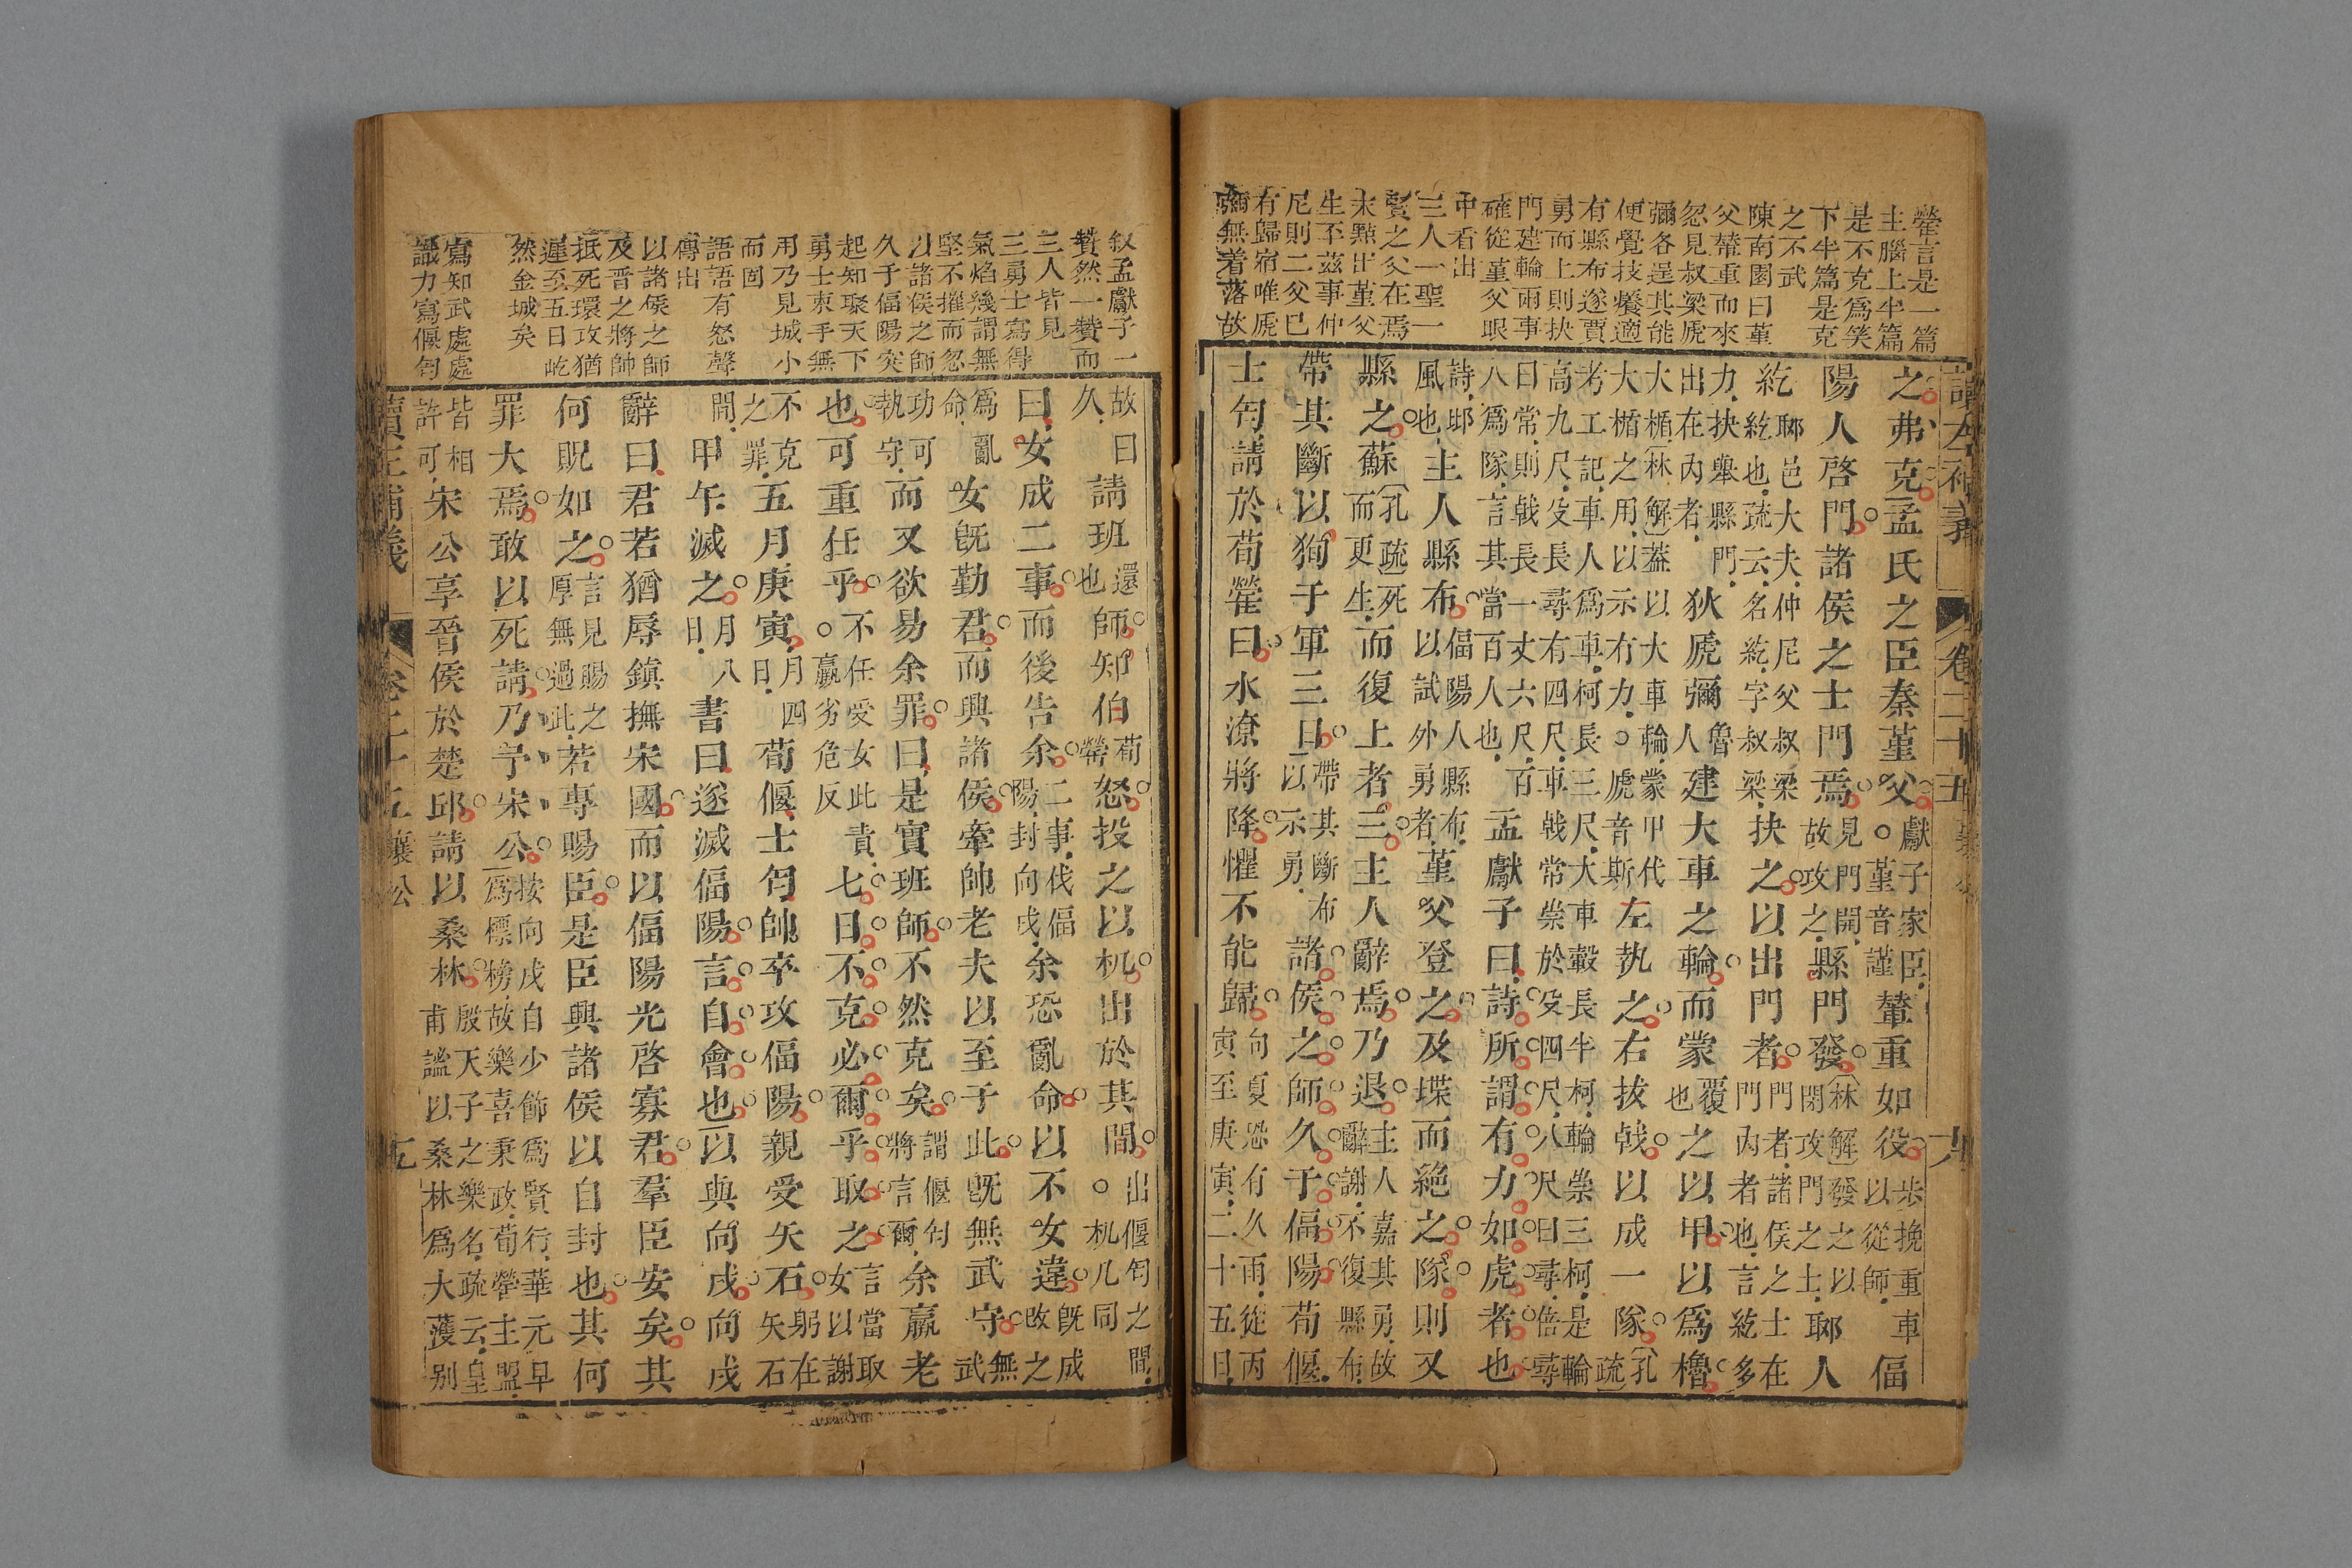 罃言是一篇
主腦上半篇
是不克爲笑
下半篇是克
之不武
陳南園曰堇
父輦重而來
忽見叔梁虒
彌各逞其能
便覺技癢適
有縣布遂賈
勇而上則抉
門建輪兩事
確從堇父眼
中看出
三人一聖一
賢之父在焉
末點出堇父
生丕茲事仲
尼則二父已
有歸宿唯虒
彌無着落故
讀左補義 卷二十五
之弗克孟氏之臣秦堇父○獻子家臣堇音謹輦重如役步挽重車以從師偪
陽人啓門諸侯之士門焉見門開故攻之縣門發(林解)發之以閉攻門之士郰人
紇郰邑大夫仲尼父叔梁紇也疏云名紇字叔梁抉之以出門者門者諸侯之士在門內者也言紇多
力抉舉縣門出在內者狄虒彌魯人建大車之輪而蒙覆也之以甲以爲櫓
大楯(林解)蓋以大車輪蒙甲代大楯之用以示有力○虒音斯左執之右拔戟以成一隊(孔疏)
考工記車人爲車柯長三尺大車轂長半柯輪崇三柯是輪高九尺殳長尋有四尺車戟常崇於殳四尺八尺曰尋倍尋
曰常則戟長一丈六尺百八爲隊言其當百人也孟獻子曰詩所謂有力如虎者也
詩邶風也主人縣布偪陽人縣布以試外勇者堇父登之及堞而絕之隊則又
縣之蘇(孔疏)死而更生而復上者三主人辭焉乃退主人嘉其勇故辭謝不復縣布
帶其斷以狥于軍三日帶其斷布以示勇諸侯之師久于偪陽荀偃
士匄請於荀罃曰水潦將降懼不能歸向夏恐有久雨從丙寅至庚寅二十五日
叙孟獻子一
贊然一贊而
三人皆見
三勇士寫得
氣焰幾謂無
堅不摧而忽
以諸侯之師
久于偪陽突
起知聚天下
勇士束手無
用乃見城小
而固
語語有怒聲
傳出
以諸侯之師
及晋之將帥
抵死環攻猶
遲至五日屹
然金城矣
寫知武處處
識力寫偃匄
故曰久請班還也師知伯荀罃怒投之以机出於其間出偃匄之間○机几同
曰女成二事而後告余二事伐偪陽封向戌余恐亂命以不女違既成之改
爲亂命女既勤君而興諸侯牽帥老夫以至于此既無武守無武
功可執守而又欲易余罪曰是實班師不然克矣謂偃匄將言爾余羸老
也可重任乎不任受女此責○羸劣危反七日不克必爾乎取之言當取女以謝
不克之罪五月庚寅月四日荀偃士匄帥卒攻偪陽親受矢石躬在矢石
間甲午滅之月八日書曰遂滅偪陽言自會也以與向戌向戌
辭曰君若猶辱鎮撫宋國而以偪陽光啓寡君羣臣安矣其
何貺如之言見賜之厚無過此若專賜臣是臣興諸侯以自封也其何
罪大焉敢以死請乃予宋公按向戌自少飾爲賢行華元早爲標榜故樂喜秉政荀罃主盟
皆相許可宋公享晉侯於楚邱請以桑林殷天子之樂名疏云皇甫謐以桑林爲大護别
讀左補義 卷二十五 襄公